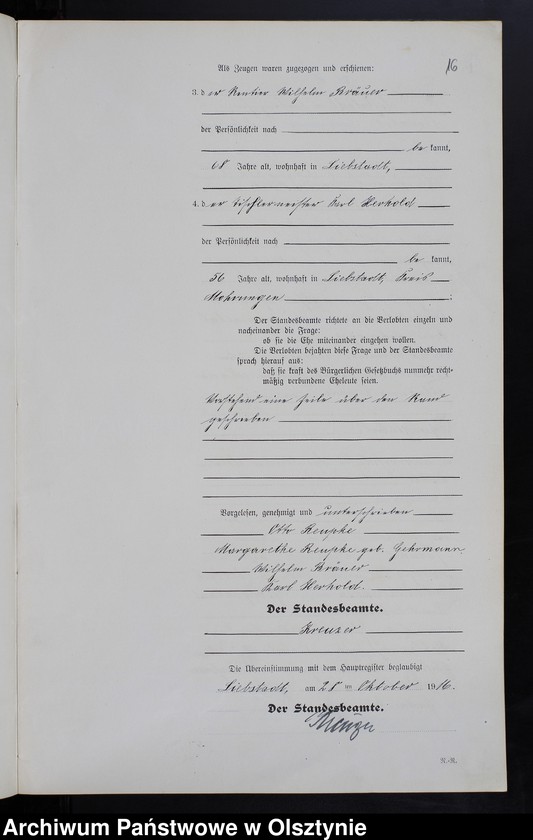 16
Als Zeugen waren zugezogen und erschienen:
3. der Rentier Wilhelm Kräuer
der Persönlichkeit nach
be kannt,
68 Jahre alt, wohnhaft in Liebstadt,
4. der Tischlermeister Karl Herhold
der Persönlichkeit nach
be kannt,
56 Jahre alt, wohnhaft in Liebstadt, Kreis
Mohrungen ;
Der Standesbeamte richtete an die Verlobten einzeln und
nacheinander die Frage:
ob sie die Ehe miteinander eingehen wollen.
Die Verlobten bejahten diese Frage und der Standesbeamte
sprach hierauf aus:
daß sie kraft des Bürgerlichen Gesetzbuchs nunmehr recht-
mäßig verbundene Eheleute seien.
Vorstehend eine Zeile über den Rand
geschrieben
Vorgelesen, genehmigt und unterschrieben
Otto Kempke
Margarethe Kempke geb. Gehrmann
Wilhelm Kräuer
Karl Herhold.
Der Standesbeamte.
Die Übereinstimmung mit dem Hauptregister beglaubigt
Liebstadt, am 28 ten Oktober 1916.
Der Standesbeamte.
R.-R.
Archiwum Państwowe w Olsztynie